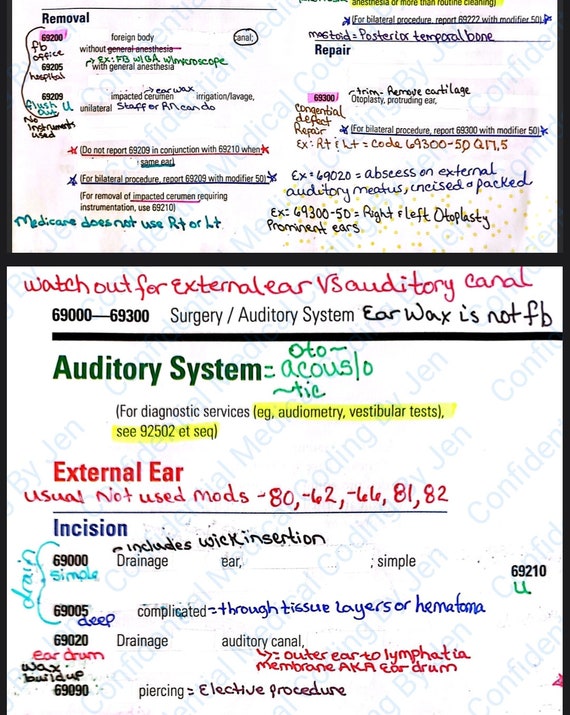 anesthesia or more than routine cleaning)
(For bilateral procedure, report 69222 with modifier 50)
mastoid = Posterior temporal bone
Removal
69200 foreign body canal;
fb
office
without general anesthesia
→ Ex: FB w/GA w/microscope
69205 with general anesthesia
hospital
→ ear wax
69209 impacted cerumen irrigation/lavage,
flush U
out
unilateral Staff or RN can do
No
instruments
used
(Do not report 69209 in conjunction with 69210 when
same ear)
(For bilateral procedure, report 69209 with modifier 50)
(For removal of impacted cerumen requiring
instrumentation, use 69210)
Medicare does not use Rt or Lt
Repair
→ trim- Remove cartilage
69300 Otoplasty, protruding ear,
Congential
defect
Repair
(For bilateral procedure, report 69300 with modifier 50)
Ex: Rt & Lt = Code 69300-50
Ex = 69020 = abscess on external
auditory meatus, incised & packed
Ex = 69300-50 = Right & left Otoplasty
Prominent ears
watch out for External ear VS auditory canal
69000—69300 Surgery / Auditory System Ear Wax is not fb
oto~
Auditory System = acous/o
~tic
(For diagnostic services (eg, audiometry, vestibular tests),
see 92502 et seq)
External Ear
usual Not used mods -80,-62,-66, 81, 82
Incision
- includes wick insertion
drain
69000 Drainage ear, ; simple
simple
69210
U
69005 complicated = through tissue layers or hematoma
deep
69020 Drainage auditory canal,
Ear drum
↳ = outer ear to lymphatia
membrane AKA Ear drum
wax
buildup
69090 piercing = Elective procedure
Confidential Medical Coding By Jen